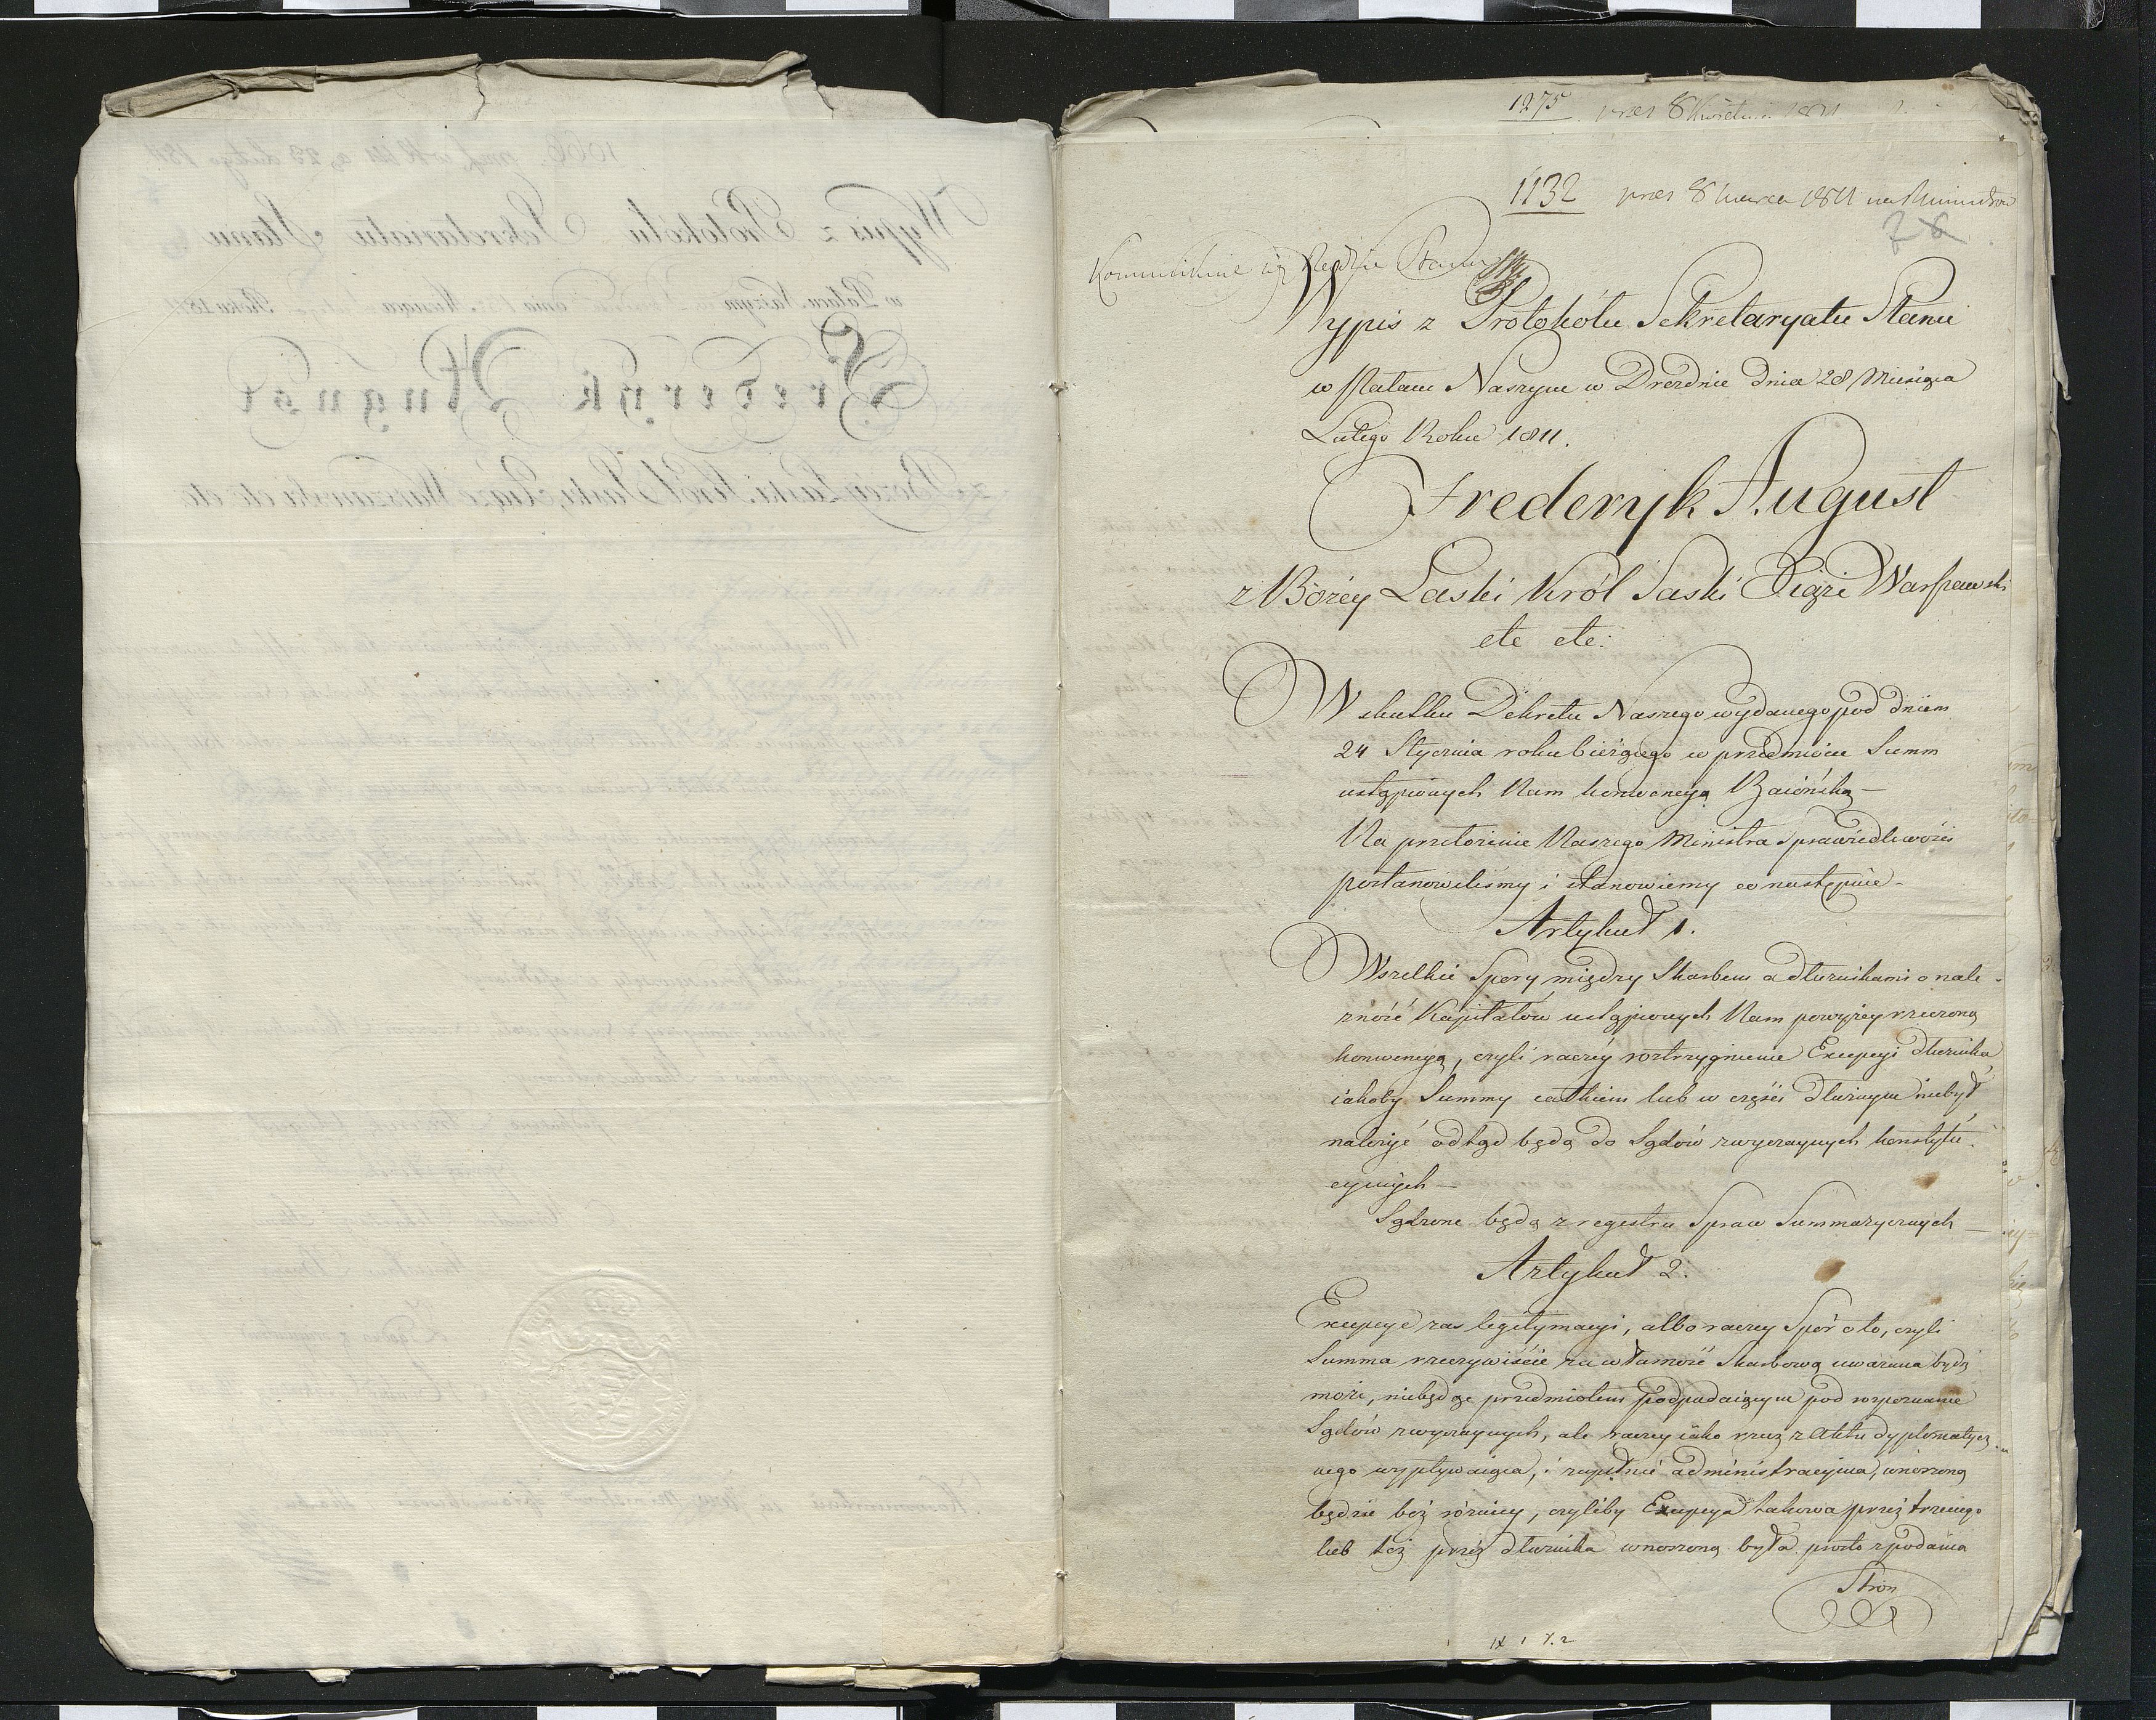 1275. prez 8 Kwietnia 1811
1132 prez 8 marca 1811 na
78
Kommunikuie się Radzie Stanu
Wypis z Protokółu Sekretaryatu Stanu
w Pałacu Naszym w Dreznie dnia 28 Miesiąca
Lutego Roku 1811.
Frederyk August
z Bożey Łaski Król Saski Xiąże Warszawski
etc etc:
W skutku Dekretu Naszego wydanego pod dniem
24 Stycznia roku bieżącego w przedmiocie Summ
ustąpionych Nam konwencyą Baiońską —
Na przełożenie Naszego Ministra Sprawiedliwości
postanowiliśmy i stanowiemy co następuie -
Artykuł 1.
Wszelkie Spory między Skarbem a dłużnikami o nale-
żność Kapitałów ustąpionych Nam powyżey rzeczoną
konwencyą, czyli raczéy roztrzygnienie Excepcyi dłużnika,
iakoby Summy całkiem lub w części dłużnym niebył,
należyć odtąd będą do Sądów zwyczaynych konstytu-
cyinych —
Sądzone będą z regestru Spraw Summarycznych —
Artykuł 2.
Excepcye zas legitymacyi, albo raczey Spór o to, czyli
Summa rzeczywiście za własność Skarbową uważana bydź
może, niebędąc przedmiotem podpadaiącym pod rozpoznanie
Sądów zwyczaynych, ale raczey iako rzecz z Aktu dyplomatycz-
nego wypływaiąca, i zupełnie administracyina, wnoszoną
będzie bez różnicy, czyliby Excepcya takowa przez trzeciego
lub też przez dłużnika wnoszoną była prosto z podania
Stron